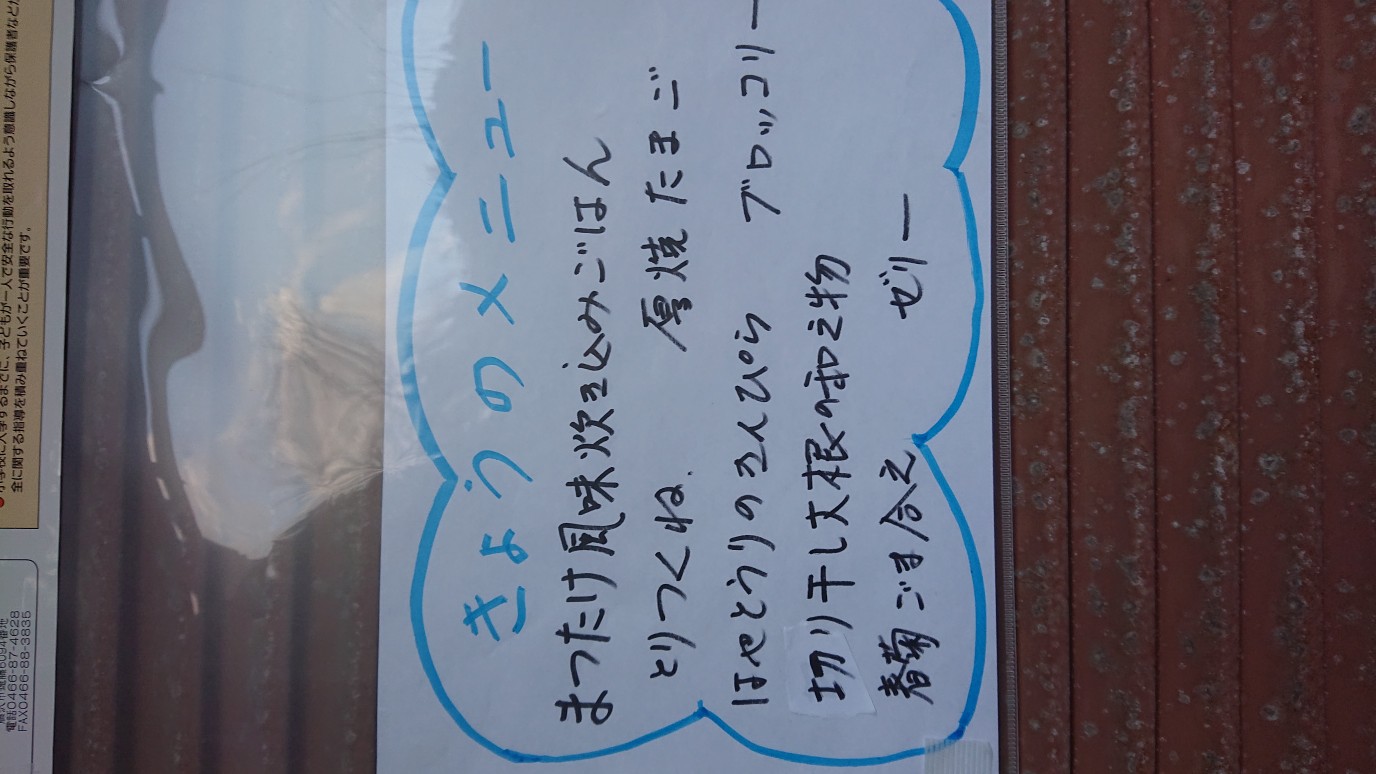 きょうのメニュー
まつたけ風味炊き込みごはん
とりつくね. 厚焼たまご
はやとうりのきんぴら ブロッコリー
切り干し大根の和え物
春菊ごま合え ゼリー
子どもが一人で安全な行動を取れるよう意識しながら保護者など
全に関する指導を積み重ねていくことが重要です。
電話0466-87-4628
FAX0466-88-3835